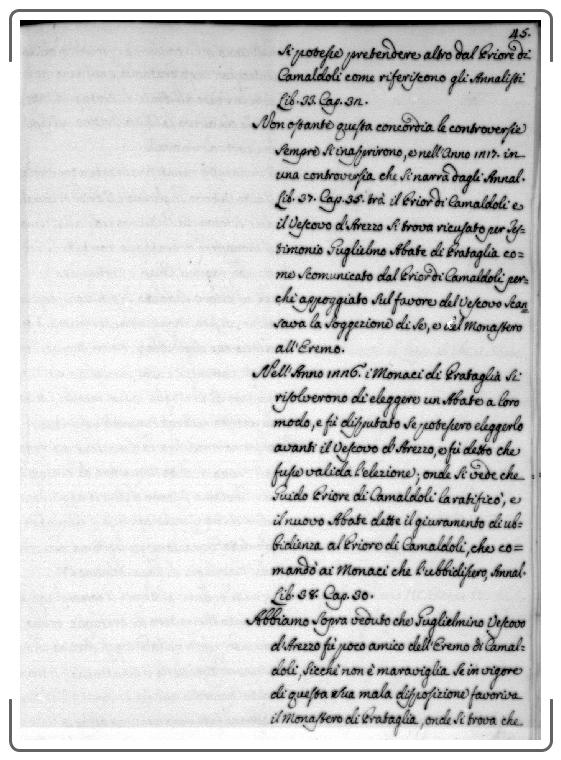 45.
si potesse pretendere altro dal Priore di
Camaldoli come riferiscono gli Annalisti
Lib. 33. Cap. 32.
Non ostante questa concordia le controversie
sempre si inasprirono, e nell'Anno 1217. in
una controversia che si narra dagli Annal.
Lib. 37. Cap. 35. trà il Prior di Camaldoli e
il Vescovo d'Arezzo si trova ricusato per Tes=
timonio Guglielmo Abate di Prataglia co=
me scomunicato dal Prior di Camaldoli per=
chi appoggiato sul favore del Vescovo scan
sava la soggezione di se, e del Monastero
all'Eremo.
Nell'Anno 1226. i Monaci di Prataglia si
risolverono di eleggere un Abate a loro
modo, e fù disputato se potessero eleggerlo
avanti il Vescovo d'Arezzo, e fù detto che
fusse valida l'elezione; onde si vede che
Guido Priore di Camaldoli la ratificò, e
il nuovo Abate dette il giuramento di ub=
bidienza al Priore di Camaldoli, che co=
mandò ai Monaci che l'ubbidissero, Annal.
Lib. 38. Cap. 30.
Abbiamo sopra veduto che Guglielmino Vescovo
d'Arezzo fù poco amico dell'Eremo di Camal=
doli, sicchè non è maraviglia se in vigore
di questa sua mala disposizione favoriva
il Monastero di Prataglia, onde si trova che